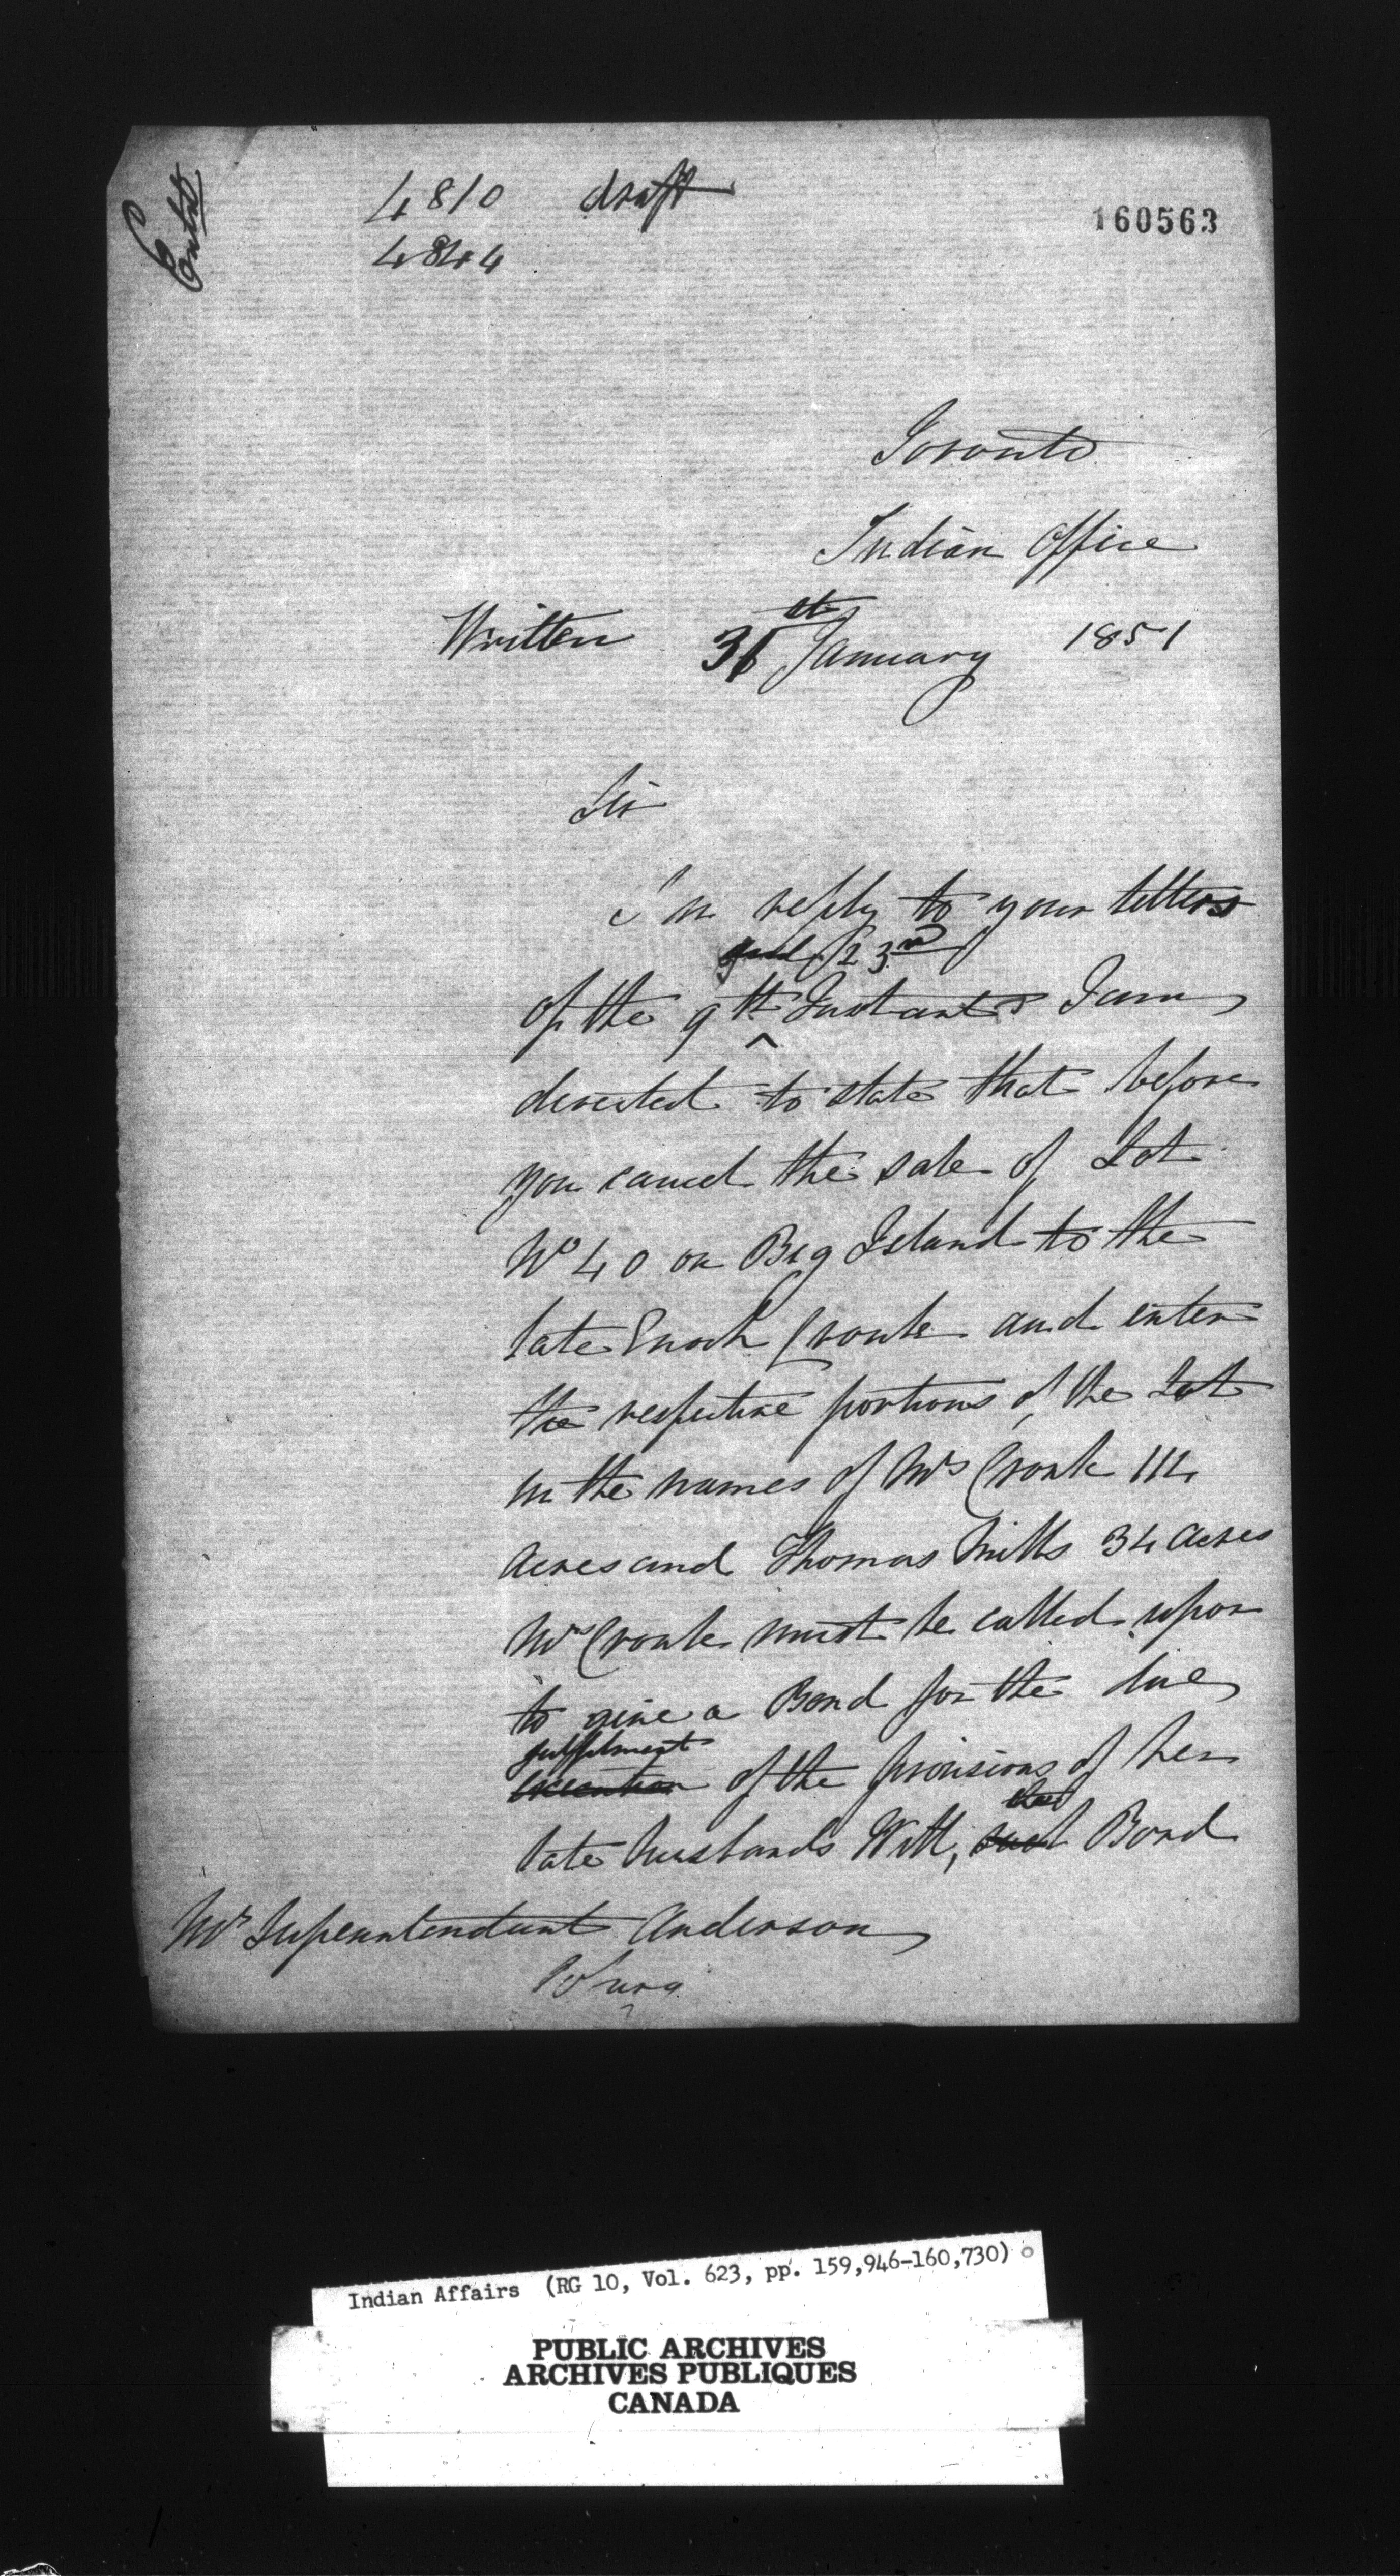 Entd
4810 draft
4844
160563
Toronto
Indian Office
Written 31st January 1851
Sir
In reply to your letters
and 23rd
of the 9th ^ Instant I am
directed to state that before
you cancel the sale of Lot
No 40 on Big Island to the
late Enoch Cronk and enter
the respective portions of the Lot
in the names of Mrs Cronk 114
Acres and Thomas Mills 34 Acres
Mrs Cronk must be called upon
to give a Bond for the due
fulfilment
execution of the provisions of her
the
late husbands Will, such Bond
Mr Superintendent Anderson
Cobourg
Indian Affairs (RG 10, Vol. 623, pp. 159,946-160,730)
PUBLIC ARCHIVES
ARCHIVES PUBLIQUES
CANADA